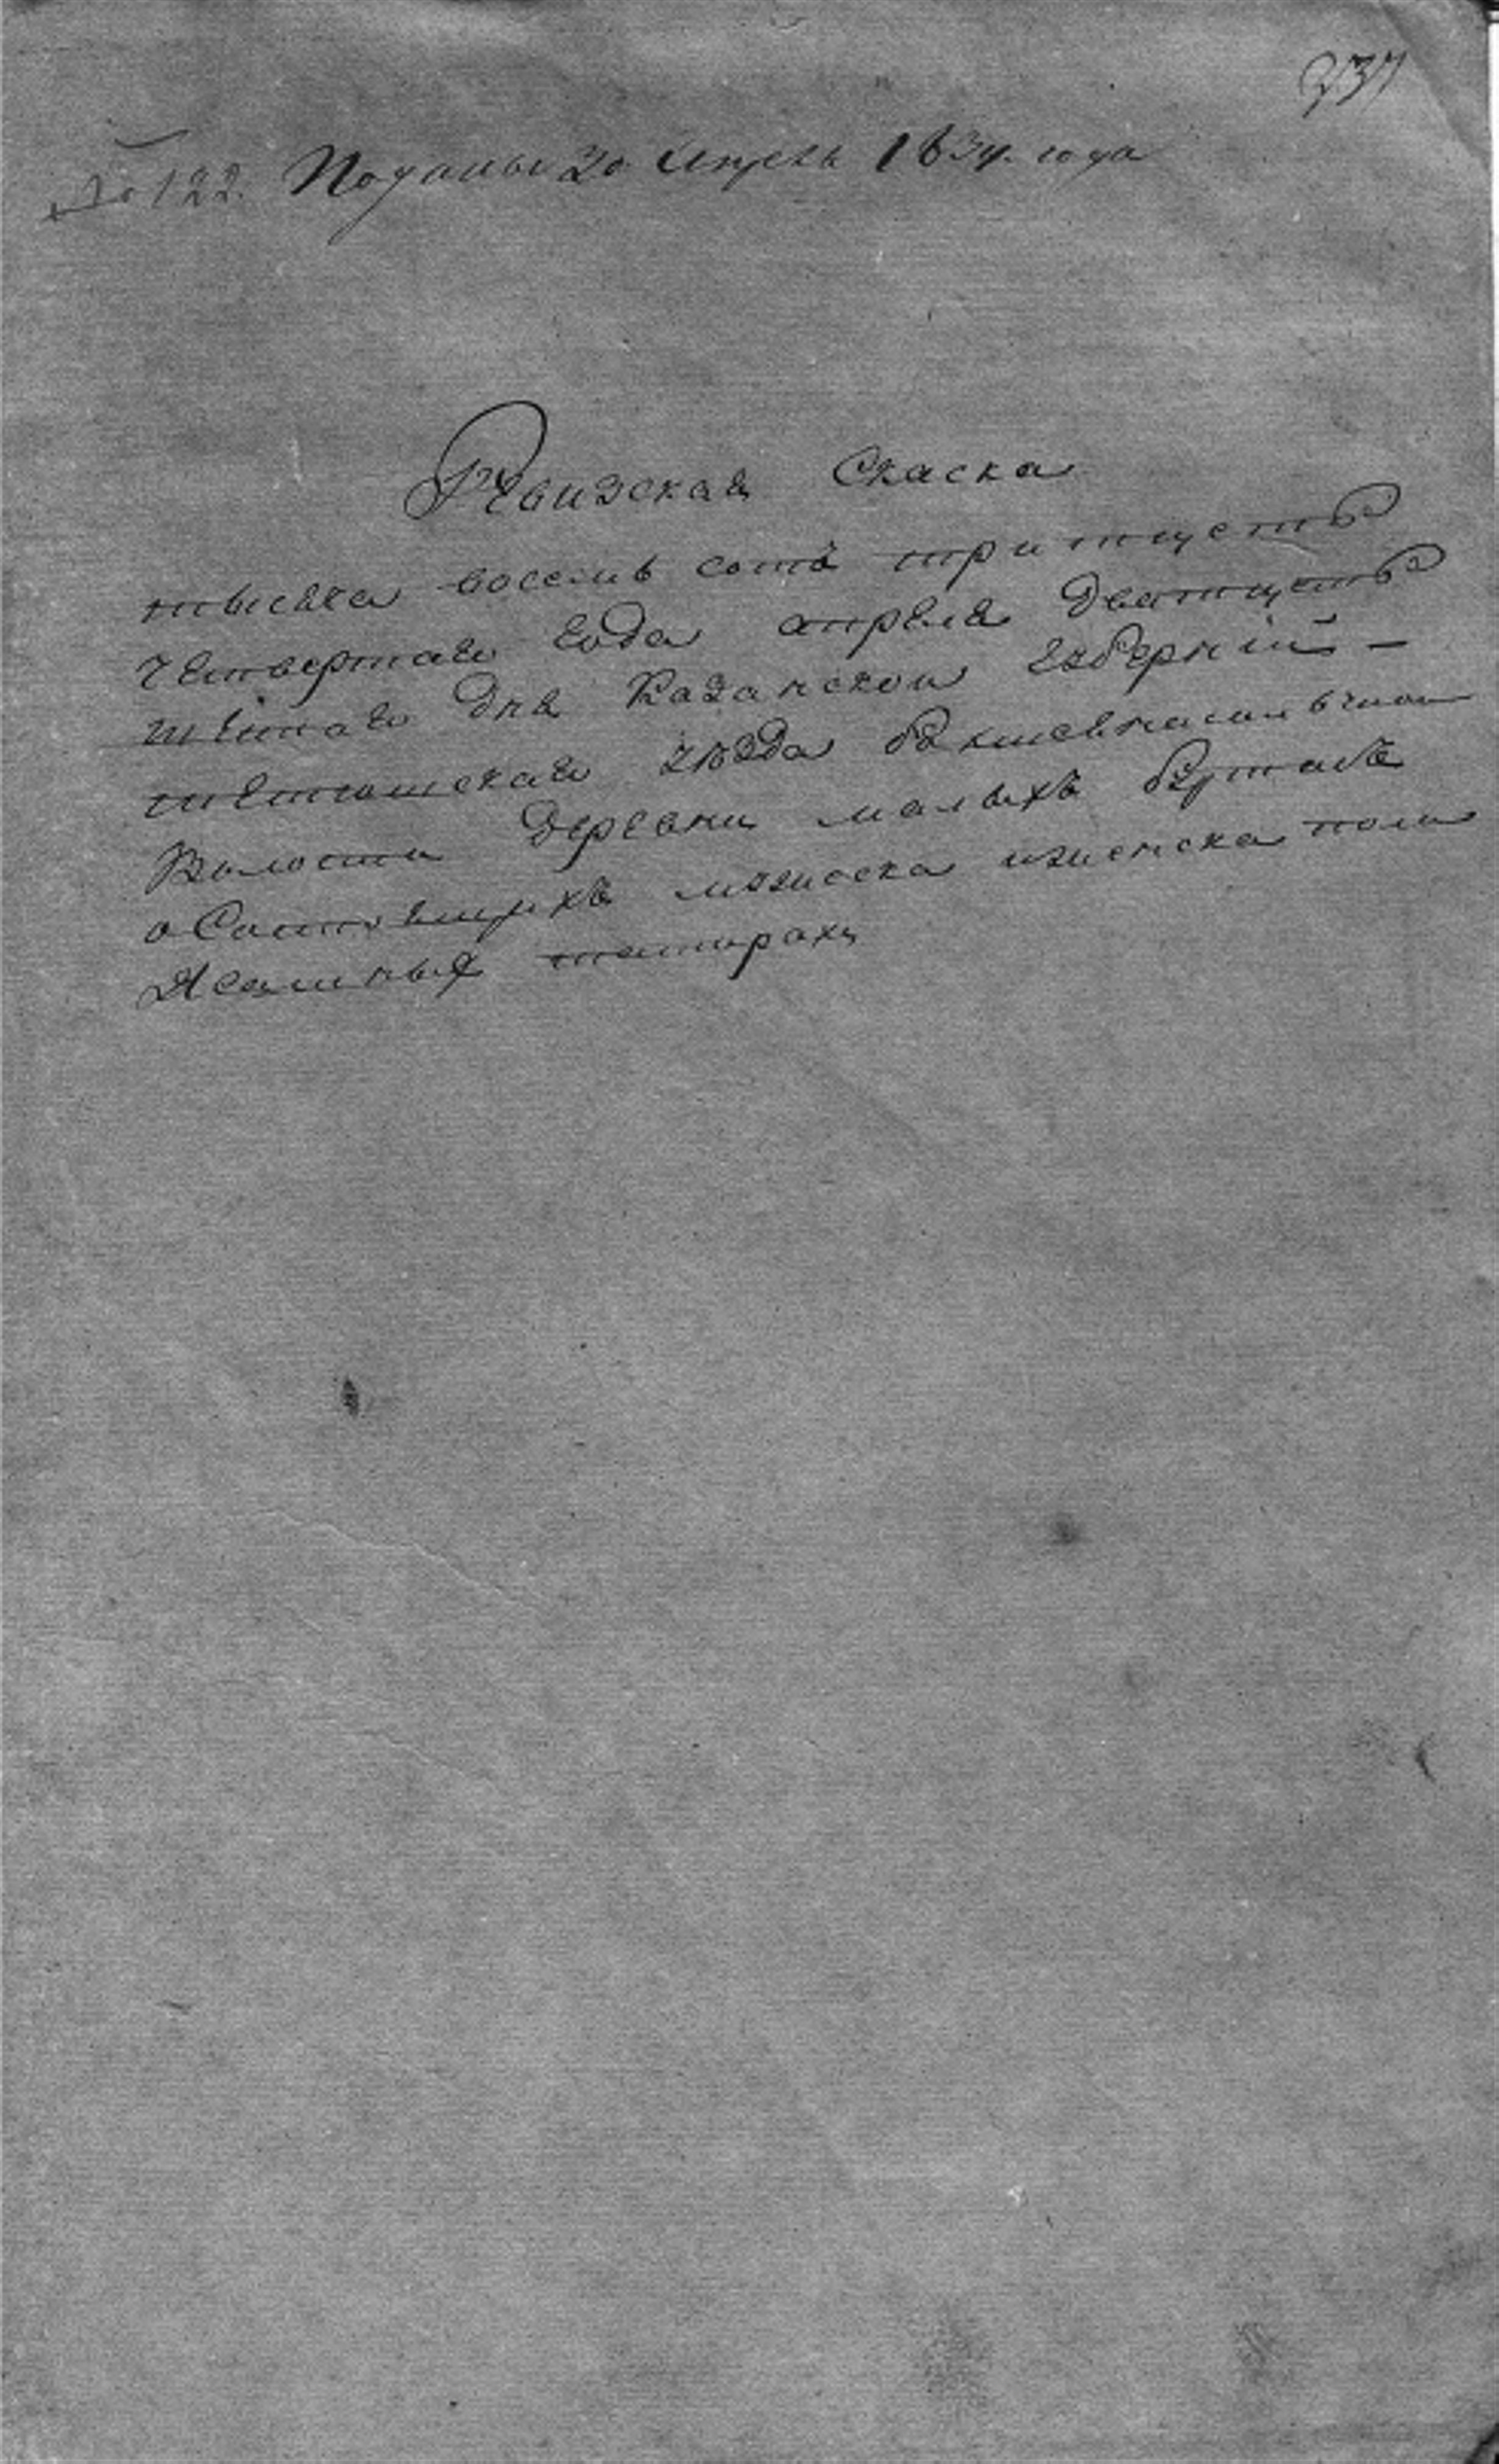 237
№ 122. Поданы 30 Апрель 1834. года
Ревизская Скаска
тысяча восемь сотъ тритцеть
четвертаго года апреля дватцеть
шестаго дня Казанской губернiи –
тетюшскаго уезда
Волости деревни малыхъ
о Состоящихъ мужеска иженска пола
Ясашныхъ татарахъ